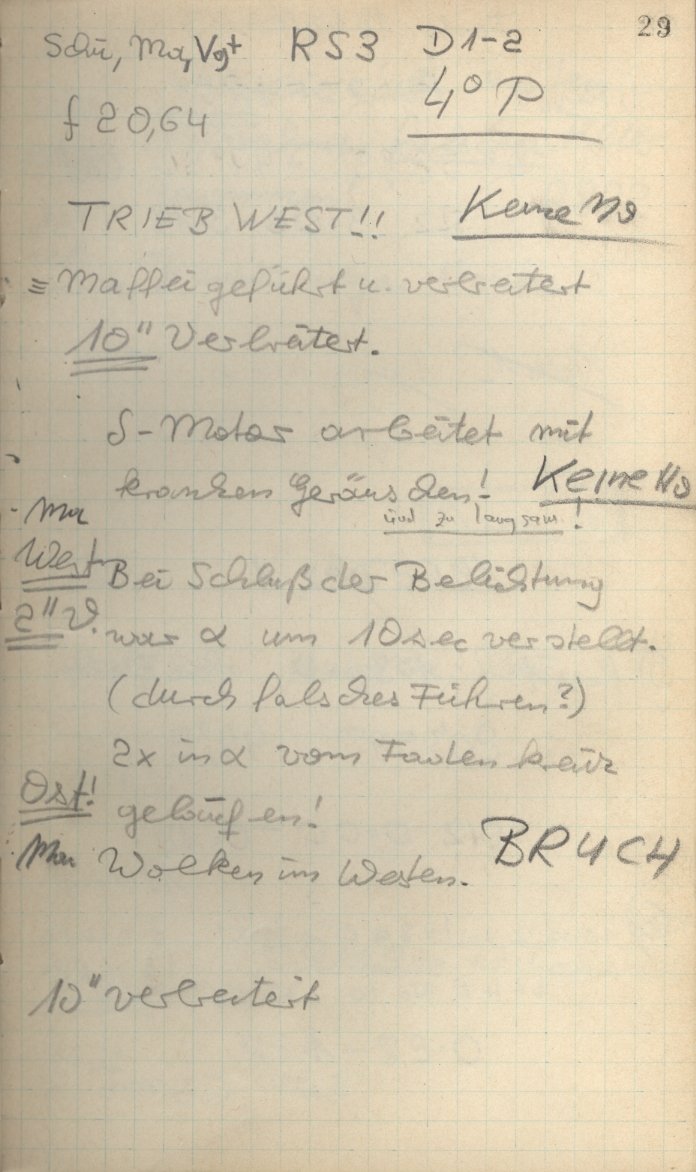 29
Schü, Ma, Vgt RS3 D1-2
4° P
f 20,64
TRIEB WEST!! Keine
≡ Maffei geführt u. verbreitert
10" Verbreitert.
δ-Motor arbeitet mit
kranken Geräuschen! Keine
und zu langsam!
Ma
West Bei Schluß der Belichtung
2" V. war α um 10sec verstellt.
(durch falsches Führen?)
2x in α vom Fadenkreuz
Ost! gelaufen!
Ma Wolken im Westen. BRUCH
10" verbreitert